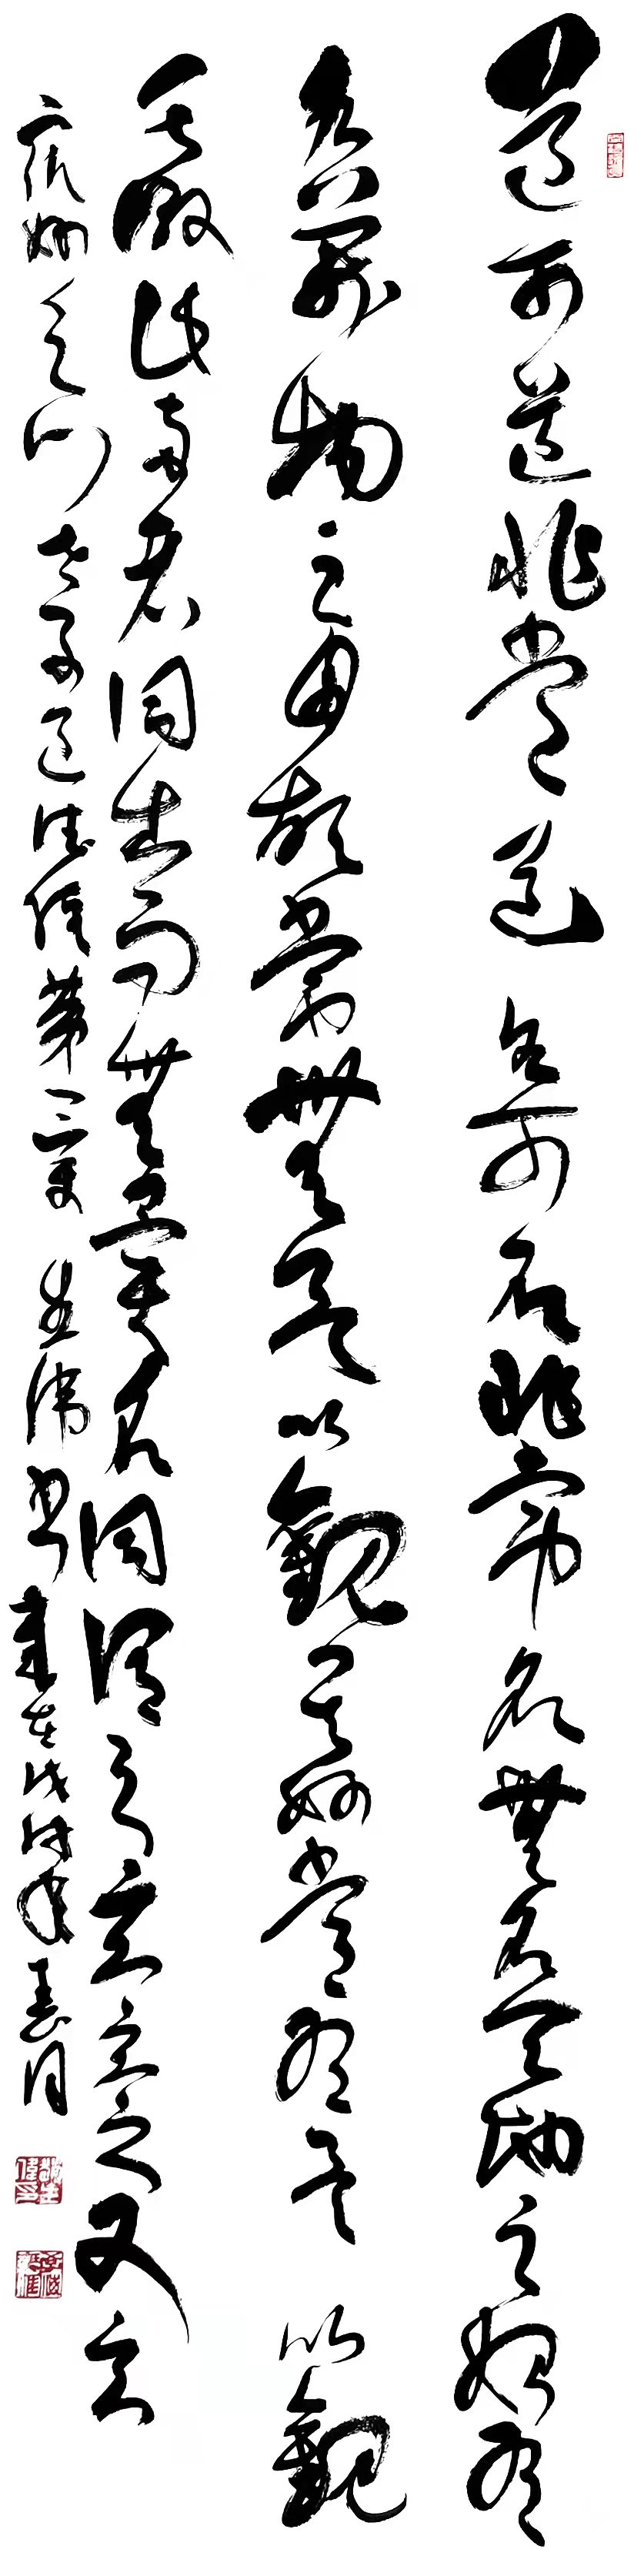 道可道非常道名可名非常名無名天地之始有
名萬物之母故常無欲以觀其妙常有欲以觀
其徼此兩者同出而無異名同謂之玄玄之又玄
衆妙之門老子道德經第一章生偉書歲在戊戌年春月